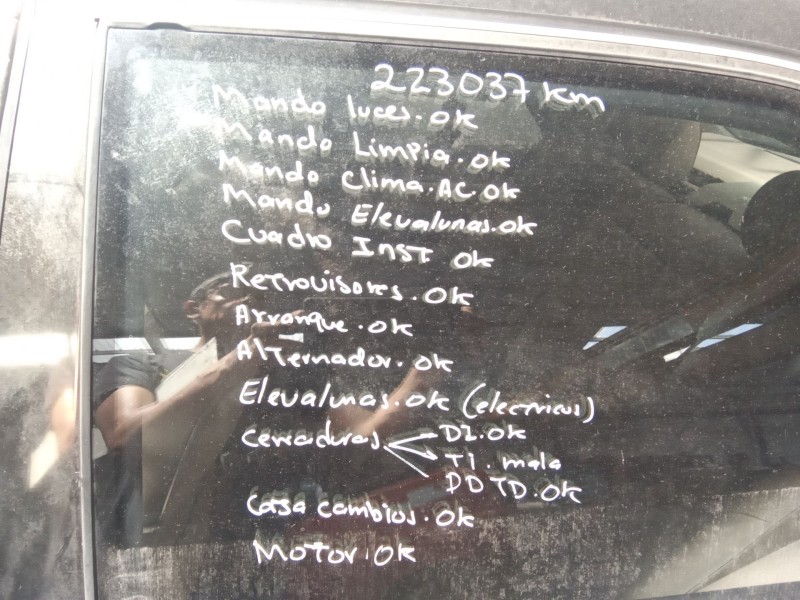 223037 km
Mando luces. OK
Mando Limpia. OK
Mando Clima. AC. OK
Mando Elevalunas. OK
Cuadro INST. OK
Retrovisores. OK
Arranque. OK
Alternador. OK
Elevalunas. OK (electricos)
Cerraduras
DI. OK
TI. mala
DD TD. OK
Caja cambios. OK
Motor. OK